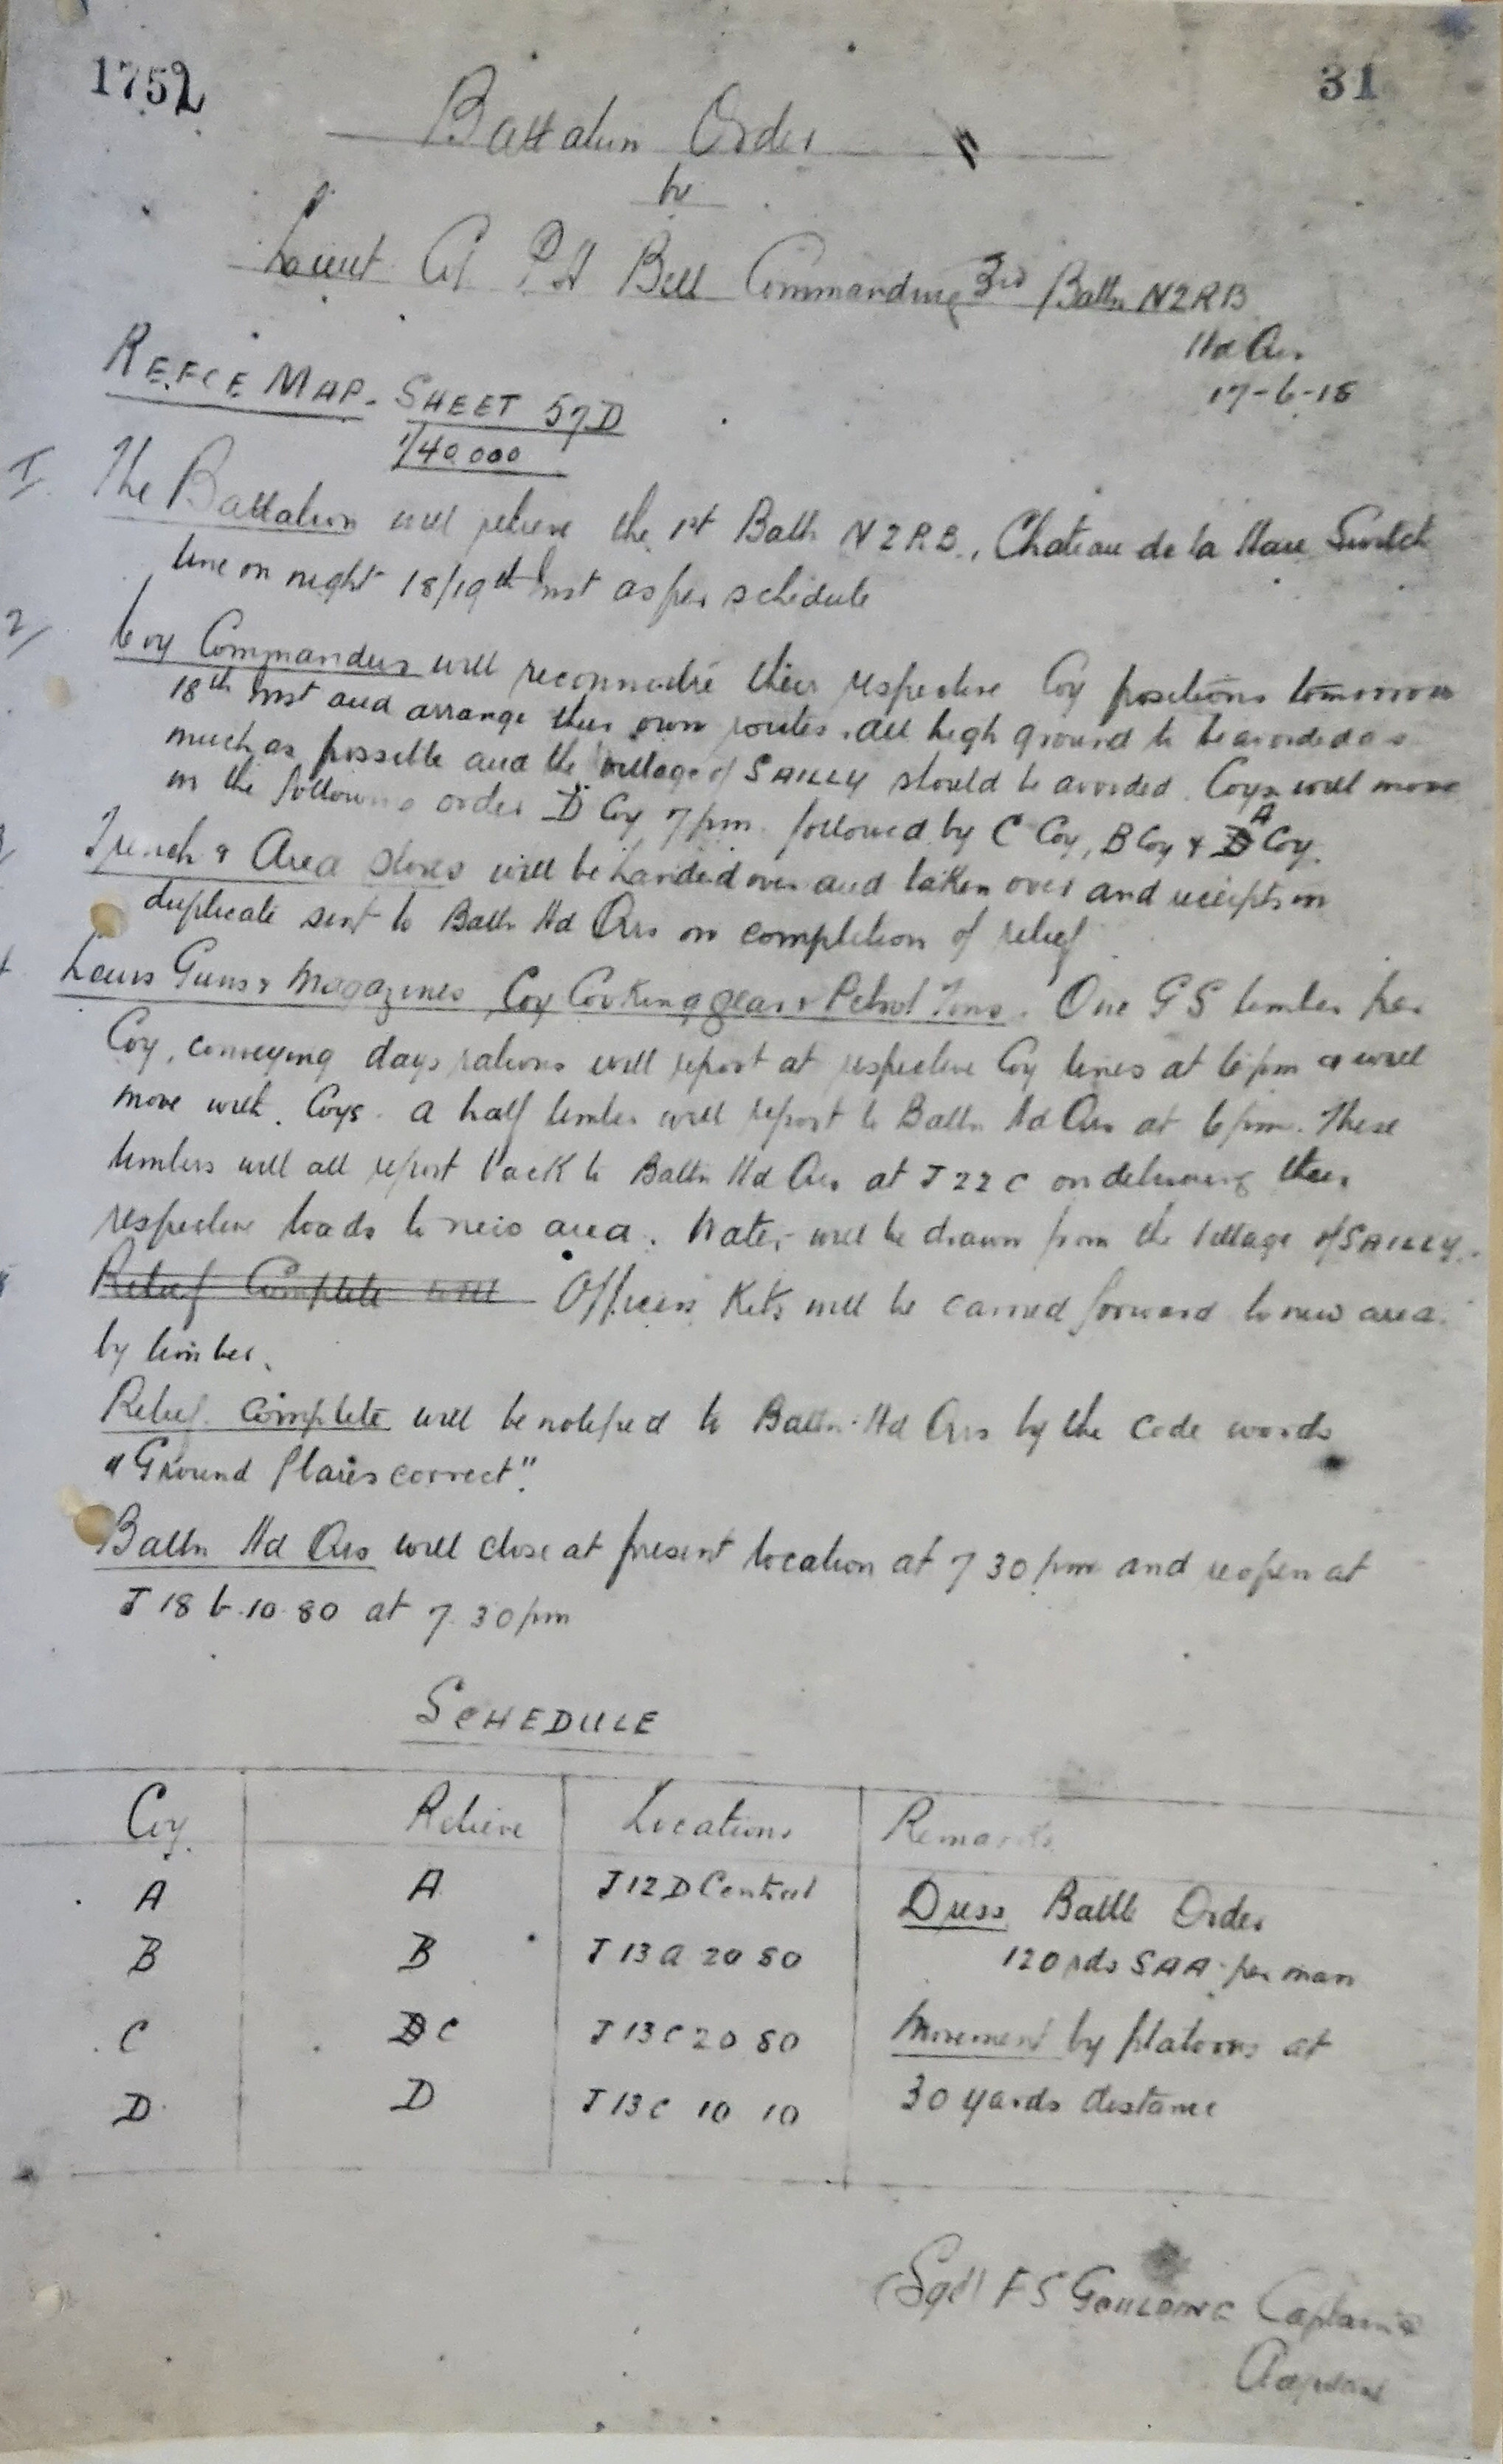 1752
31
Battalion Order
by
Lieut Col P H Bell Commanding 3rd Battn NZRB
Hd Qrs
17-6-18
REFCE MAP. SHEET 57D
1/40,000
I. The Battalion will relieve the 1st Battn NZRB., Chateau de la Haie Switch
line on night 18/19th inst as per schedule
2/ Coy Commanders will reconnoitre their respective Coy positions tomorrow
18th inst and arrange their own routes. All high ground to be avoided as
much as possible and the village of SAILLY should be avoided. Coys will move
in the following order D Coy 7pm followed by C Coy, B Coy & A Coy.
Trench & Area stores will be handed over and taken over and receipts in
duplicate sent to Battn Hd Qrs on completion of relief
Lewis Guns & Magazines, Coy Cooking gear & Petrol Tins. One GS limber per
Coy, conveying days rations will report at respective Coy lines at 6pm & will
move with Coys. A half limber will report to Battn Hd Qrs at 6pm. These
limbers will all report back to Battn Hd Qrs at J22C on delivering their
respective loads to new area. Water will be drawn from the village of SAILLY.
Relief Complete will Officers Kits will be carried forward to new area
by limber.
Relief complete will be notified to Battn Hd Qrs by the code words
"Ground flares correct".
Battn Hd Qrs will close at present location at 7 30 pm and reopen at
J 18 b.10.80 at 7.30pm
SCHEDULE
Coy Relieve Locations Remarks
A A J12D Central Dress Battle Order
B B J 13 a 20 80 120 rds SAA per man
C C J 13 C 20 80 Movement by platoons at
D D J 13 C 10 10 30 yards distance
(Sgd) F S GOULDING Captain &
Adjutant